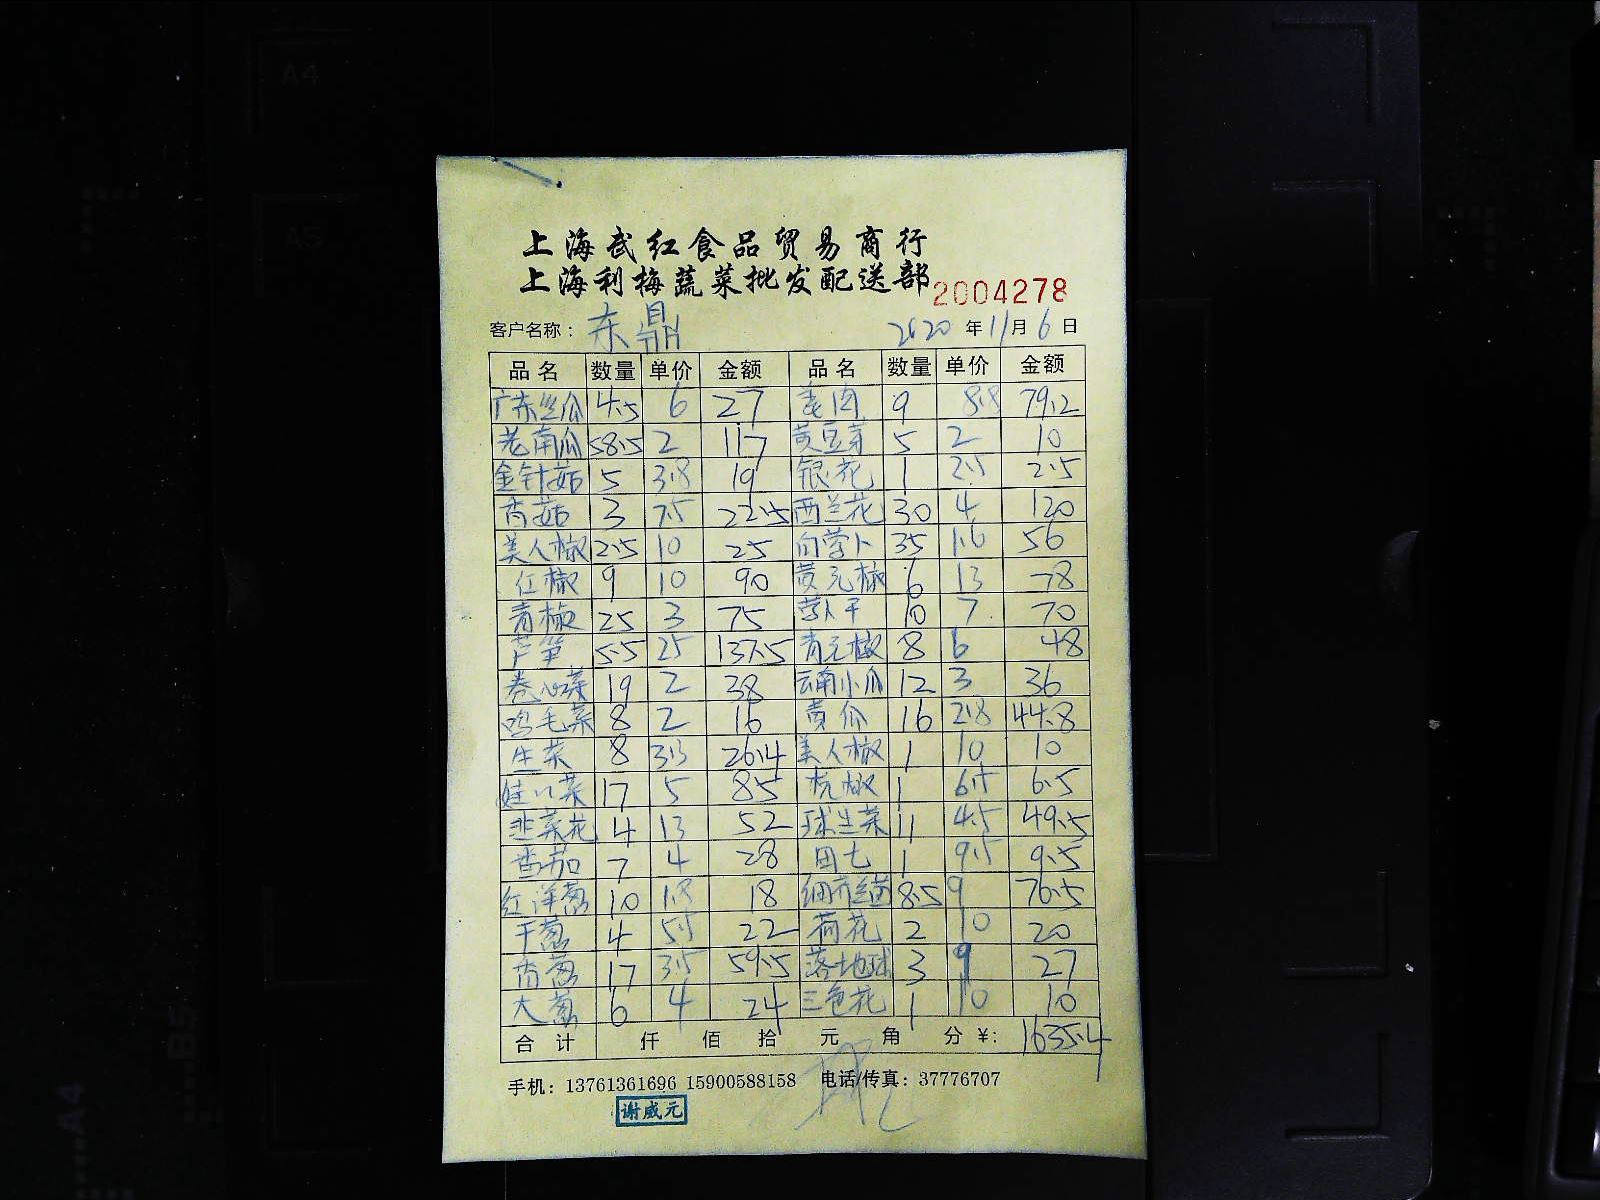 A4
A5
上海武红食品贸易商行
上海利梅蔬菜批发配送部 2004278
客户名称： 东鼎 2020 年 11 月 6 日
品名 数量 单价 金额 品名 数量 单价 金额
广东丝瓜 4.5 6 27 姜肉 9 8.8 79.2
老南瓜 58.5 2 117 黄豆芽 5 2 10
金针菇 5 3.8 19 银花 1 2.5 2.5
香菇 3 7.5 22.5 西兰花 30 4 120
美人椒 2.5 10 25 白萝卜 35 1.6 56
红椒 9 10 90 黄元椒 6 13 78
青椒 25 3 75 萝卜干 10 7 70
芦笋 5.5 25 137.5 青元椒 8 6 48
卷心菜 19 2 38 云南小瓜 12 3 36
鸡毛菜 8 2 16 黄瓜 16 2.8 44.8
生菜 8 3.3 26.4 美人椒 1 10 10
娃娃菜 17 5 85 杭椒 1 6.5 6.5
韭菜花 4 13 52 球生菜 11 4.5 49.5
番茄 7 4 28 田七 1 9.5 9.5
红洋葱 10 1.8 18 8.5 9 76.5
干葱 4 5.5 22 荷花 2 10 20
香葱 17 3.5 59.5 落地球 3 9 27
大葱 6 4 24 三色花 1 10 10
合计 仟 佰 拾 元 角 分 ¥: 1635.4
手机：13761361696 15900588158 电话/传真：37776707
谢威元
B5
A4